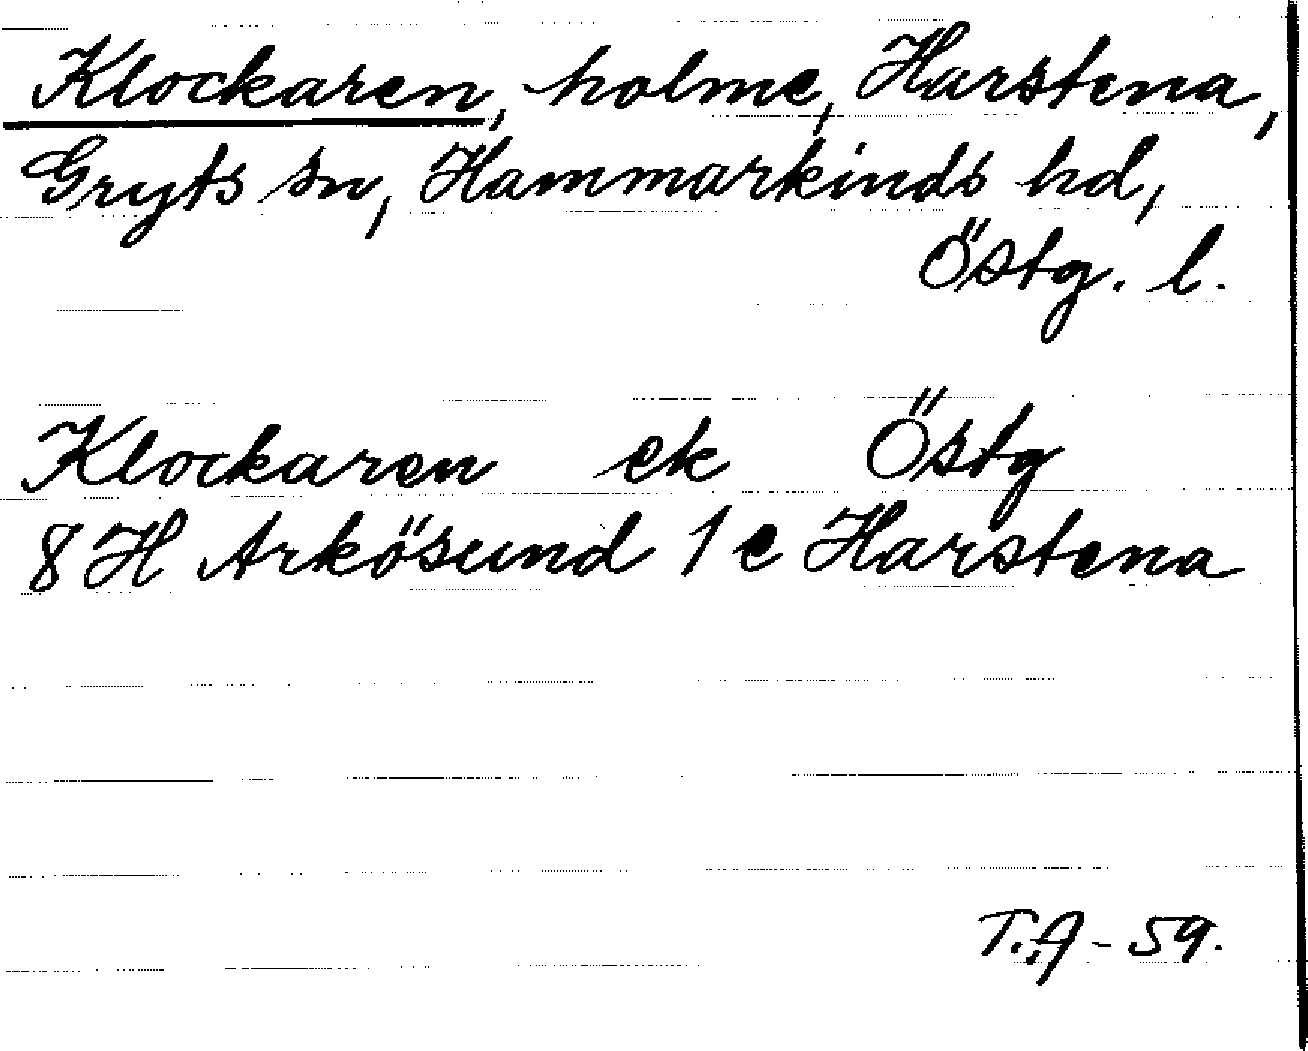 Klockaren, holme, Harstena,
Gryts sn, Hammarkinds hd,
Östg. l.
Klockaren ek Östg
8 H Arkösund 1 e Harstena
T.A - 59.